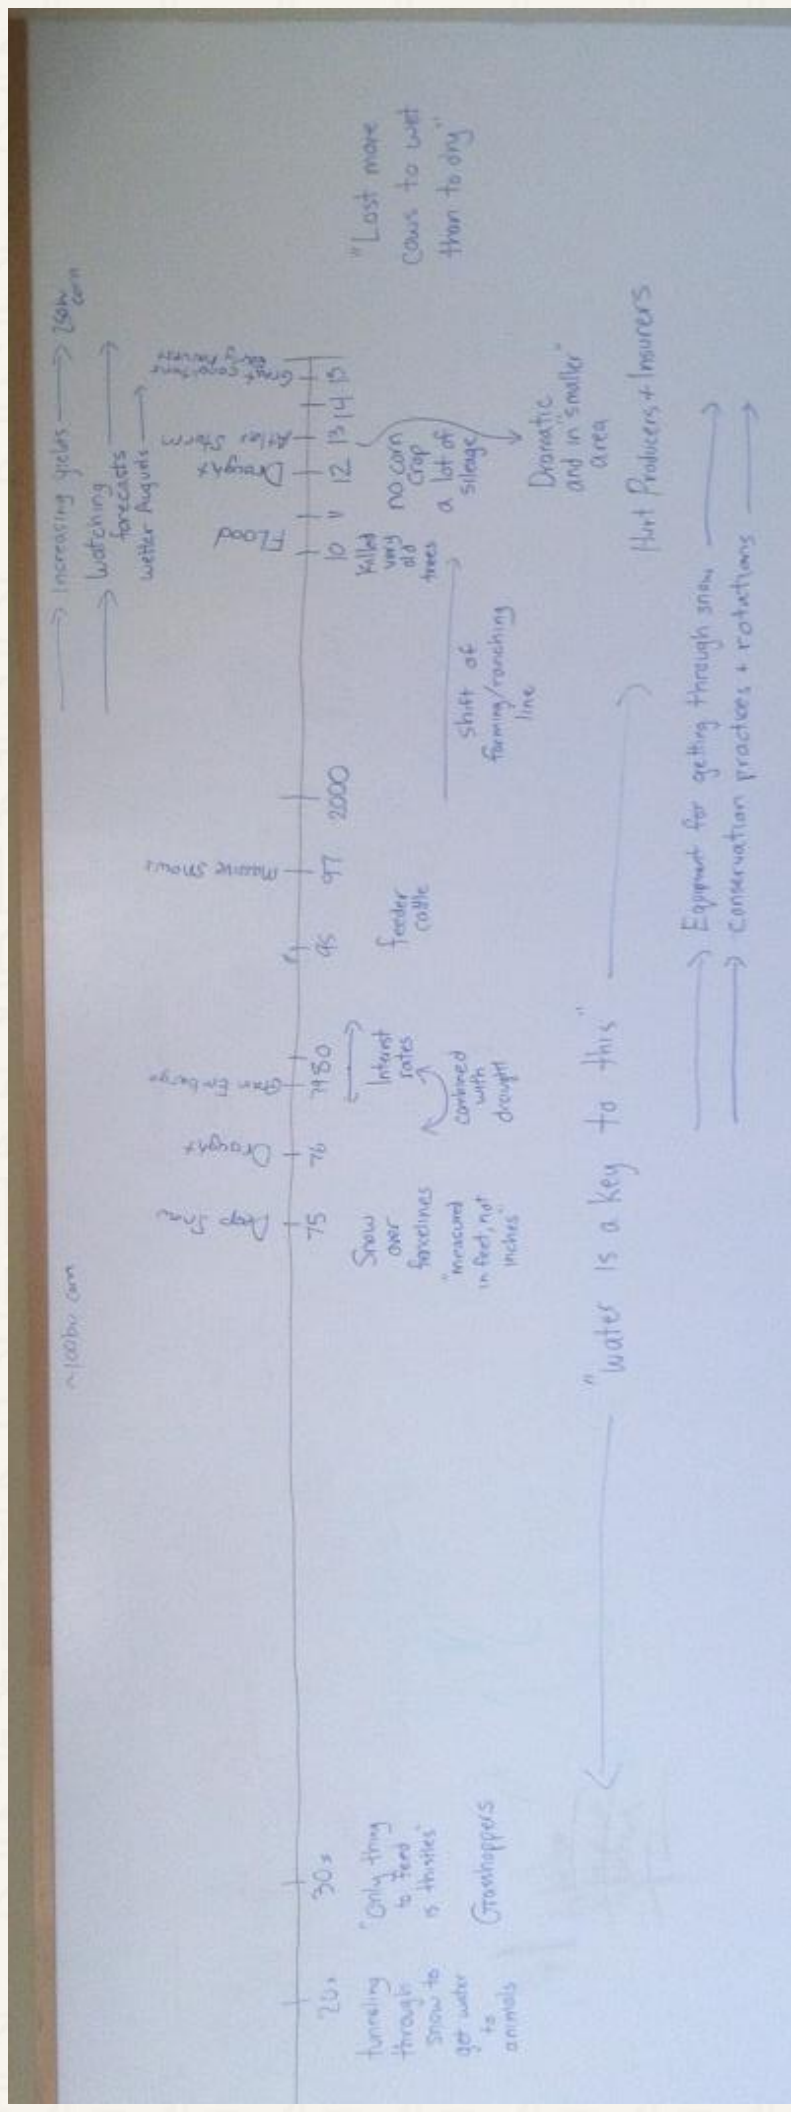 ~100bu corn
Increasing yields
250bu corn
Watching
forecasts
wetter Augusts
Deep
Snow
Drought
Grain Embargo
Massive snows
Flood
Drought
Atlas Storm
Great conditions
early harvest
20s
30s
75
76
79
80
95
97
2000
10
11
12
13
14
15
tunneling
through
snow to
get water
to
animals
"Only thing
to feed
is thistles"
Grasshoppers
Snow
over
fencelines
"measured
in feet, not
inches"
Interest
rates
combined
with
drought
feeder
cattle
shift of
farming/ranching
line
Killed
very
old
trees
no corn
crop
a lot of
sileage
Dramatic
and in "smaller"
area
"Lost more
cows to wet
than to dry"
"Water is a key to this"
Hurt Producers + Insurers
Equipment for getting through snow
Conservation practices + rotations